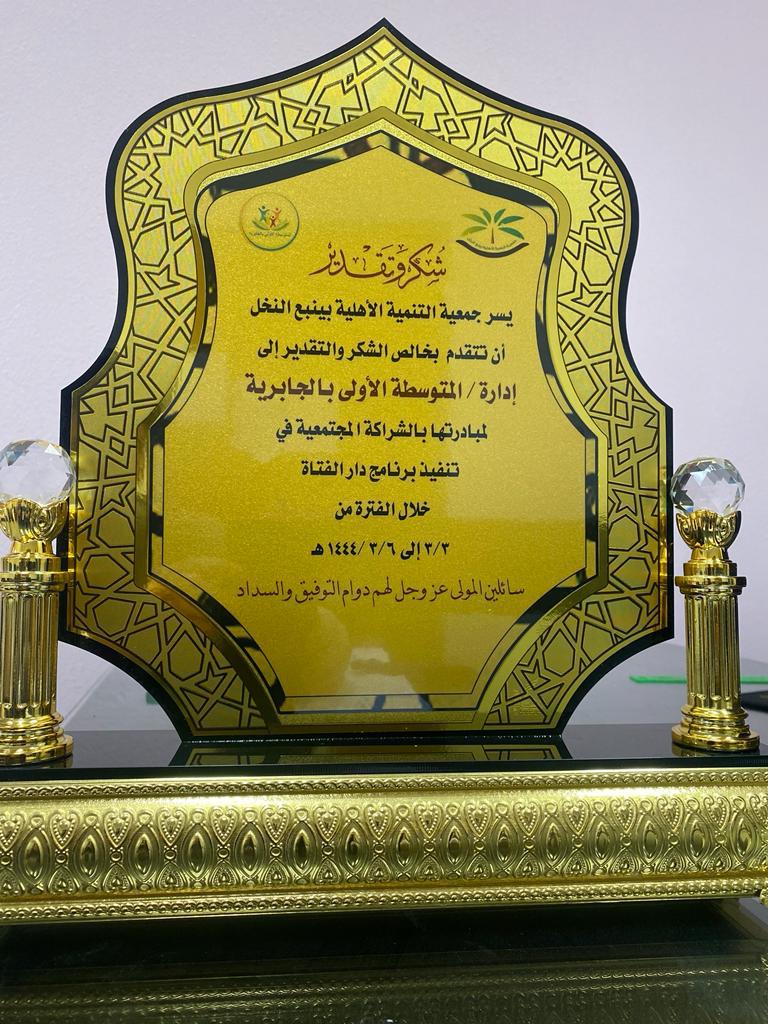 شكر وتقدير
يسر جمعية التنمية الأهلية بينبع النخل
أن تتقدم بخالص الشكر والتقدير إلى
إدارة / المتوسطة الأولى بالجابرية
لمبادرتها بالشراكة المجتمعية في
تنفيذ برنامج دار الفتاة
خلال الفترة من
٣/٣ إلى ٣/٦ /١٤٤٤ هـ
سائلين المولى عز وجل لهم دوام التوفيق والسداد